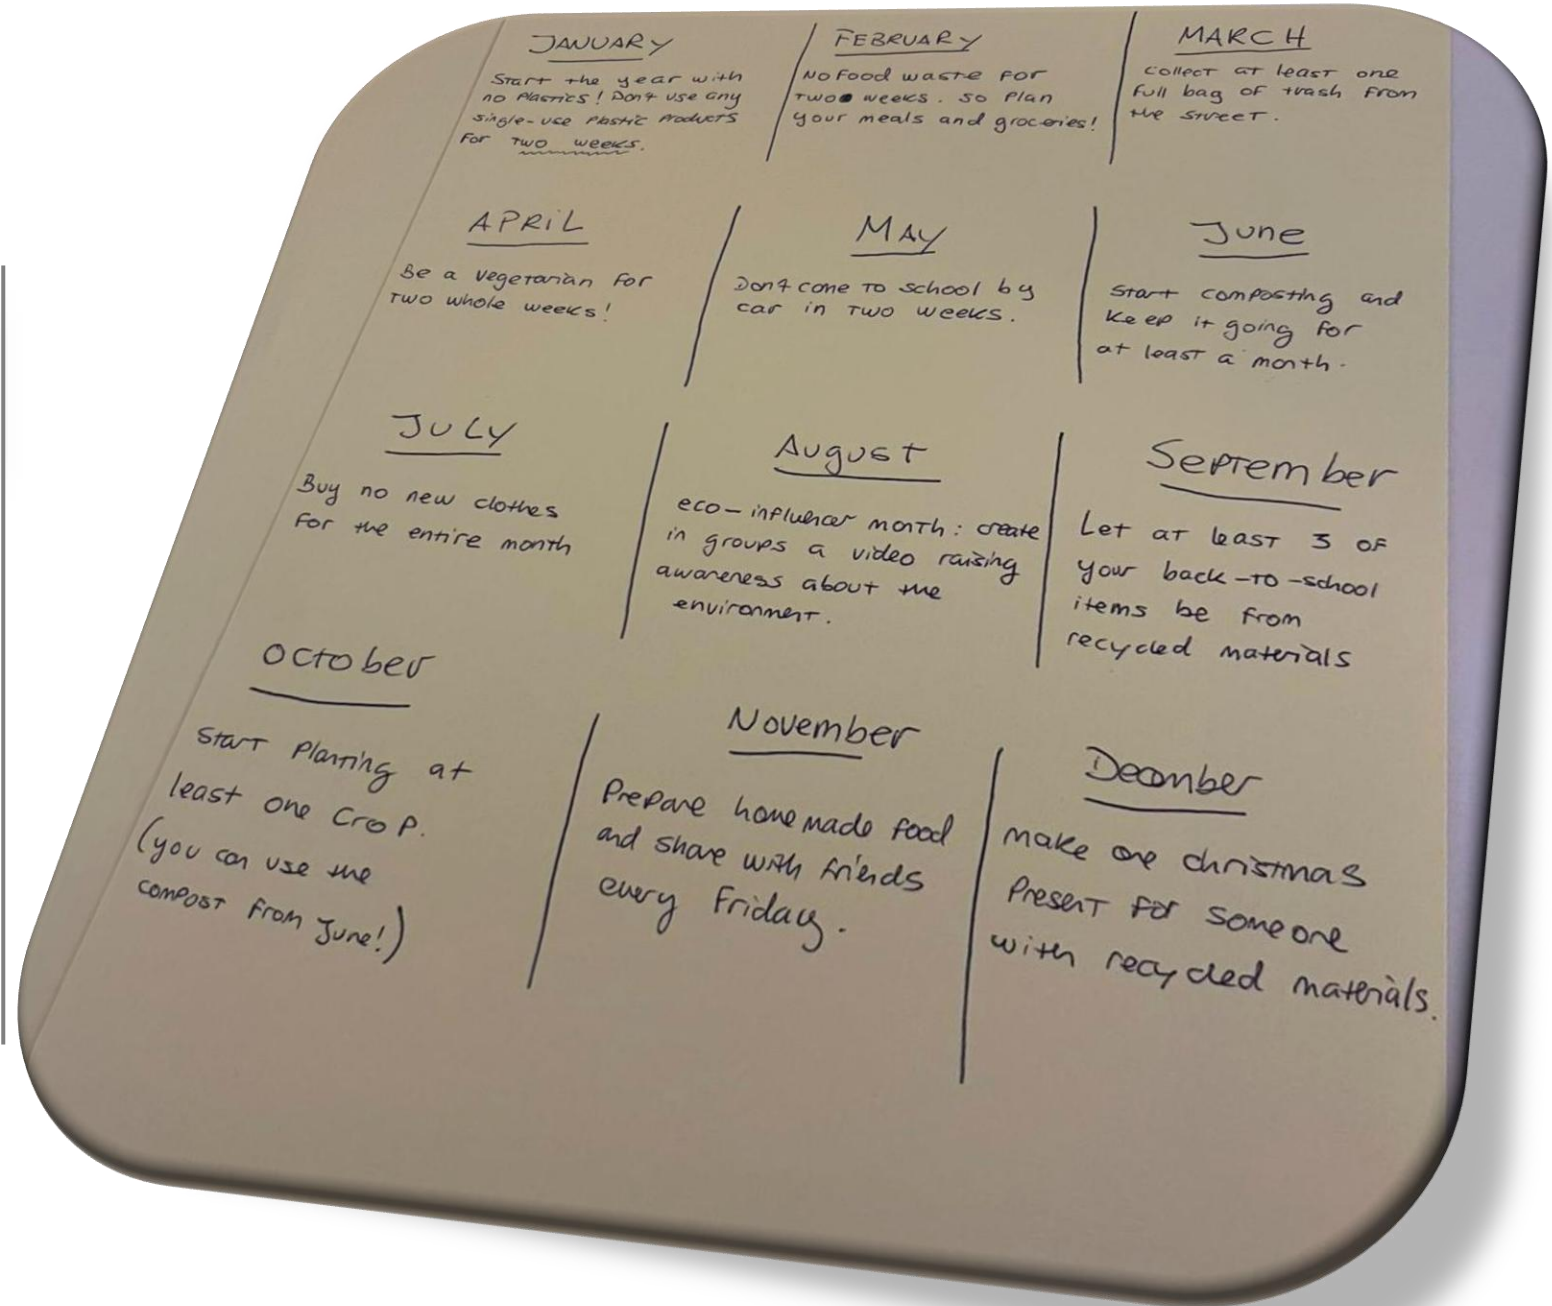 JANUARY
Start the year with
no Plastics! Don't use any
single-use Plastic Products
For Two weeks.
FEBRUARY
No Food waste For
Two weeks. So Plan
your meals and groceries!
MARCH
collect at least one
full bag of trash From
the street.
APRiL
Be a vegetarian For
Two whole weeks!
MAY
Don't come To school by
car in Two weeks.
June
Start composting and
keep it going for
at least a month.
JULY
Buy no new clothes
For the entire month
August
eco-influencer month: create
in groups a video raising
awareness about the
environment.
September
Let at least 3 of
your back-to-school
items be from
recycled materials
October
Start Planting at
least one Crop.
(you can use the
compost from June!)
November
Prepare homemade food
and share with friends
every Friday.
December
make one christmas
Present for someone
with recycled materials.